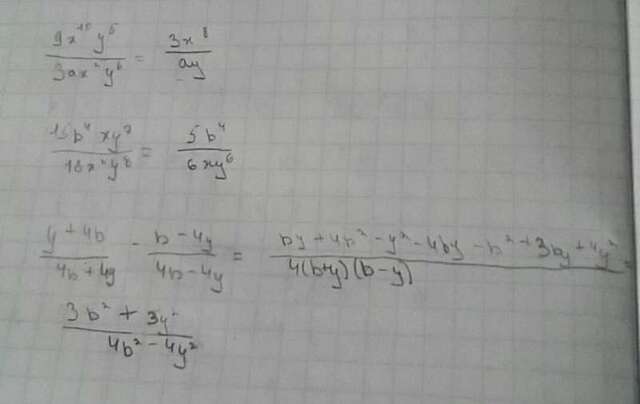 9x¹⁰y⁵ / 3ax²y⁶ = 3x⁸ / ay
15b⁴xy² / 18x²y⁸ = 5b⁴ / 6xy⁶
(y+4b) / (4b+4y) - (b-4y) / (4b-4y) = (by+4b²-y²-4by-b²+3by+4y²) / 4(b+y)(b-y) =
(3b²+3y²) / (4b²-4y²)